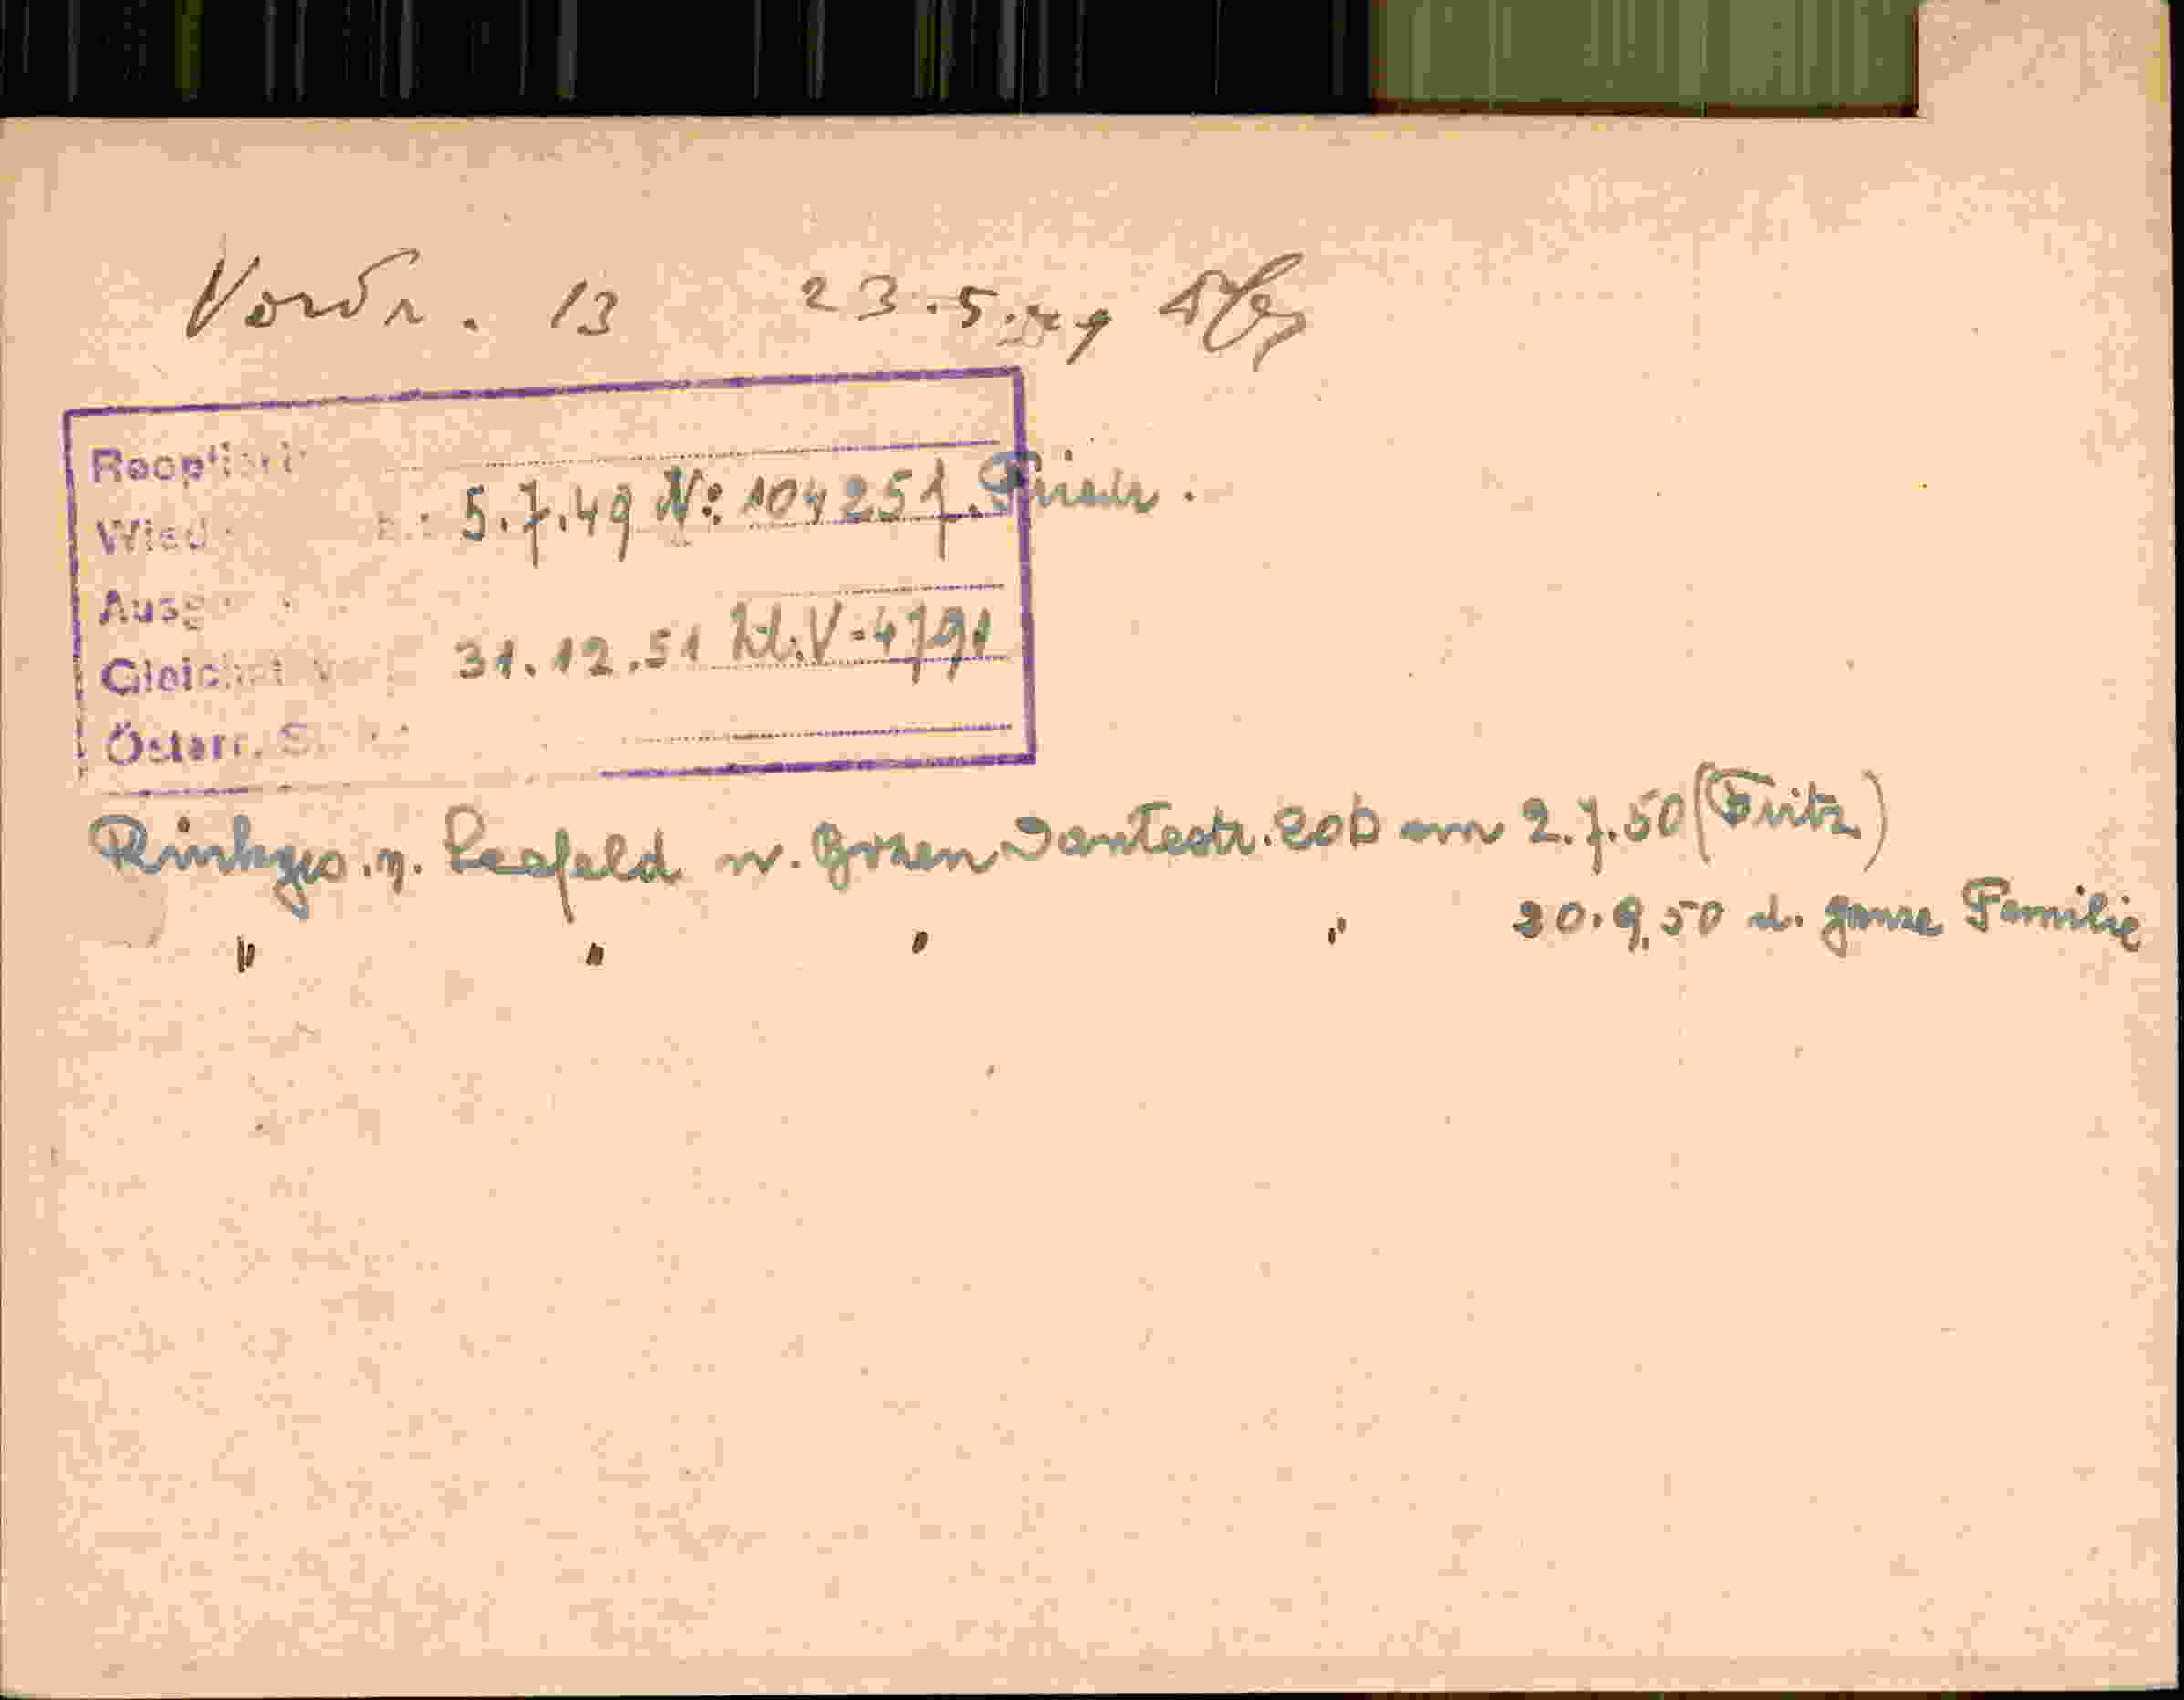 Vordr. 13 23.5.49
Reoptiert
Wied : 5.7.49 N: 104257. Friedr.
Ausg
Gleichst 31.12.51 Zl. V-4791
Österr. S.
Rückges. n. Seefeld v. Bozen Dantestr. 20b am 2.7.50 (Fritz)
" " " " 20.9.50 d. ganze Familie